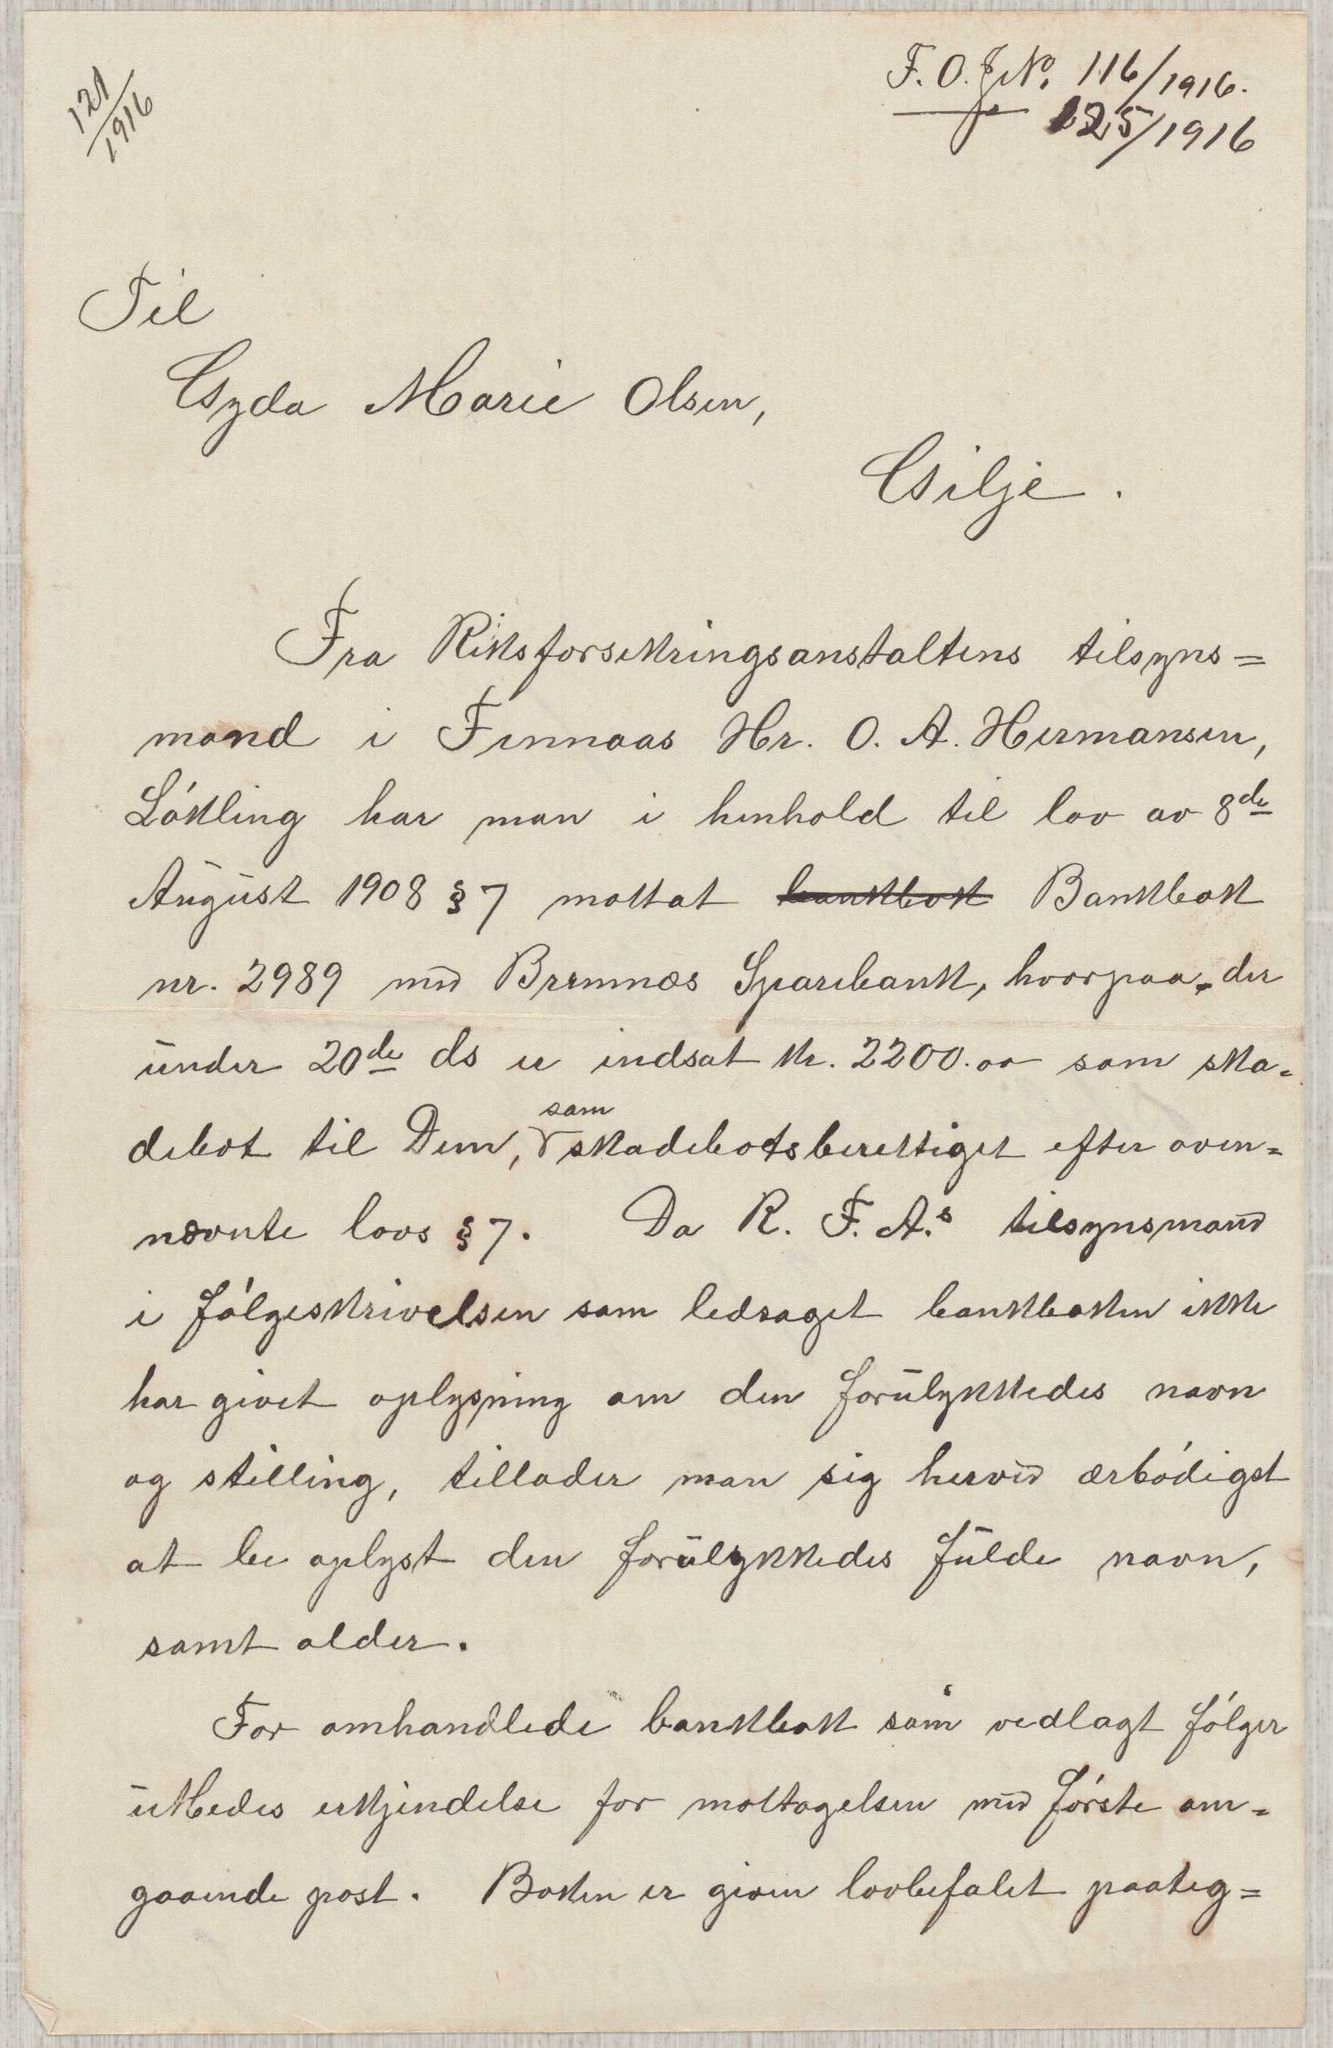 121/1916
F. O. J. No. 116/1916.
125/1916
Til
Gyda Marie Olsen,
Gilje.
Fra Riksforsikringsanstaltens tilsyns=
mand i Finnaas Hr. O. A. Hermansen,
Lókling har man i henhold til lov av 8de
August 1908 § 7 mottat bankbok Bankbok
nr. 2989 med Bremnes Sparebank, hvorpaa der
under 20de ds er indsat kr. 2200.00 som ska-
debot til Dem, som skadebotsberettiget efter oven=
nævnte lovs § 7. Da R. F. A.s tilsynsmand
i fólgeskrivelsen som ledsaget bankboken ikke
har givet oplysning om den forulykkedes navn
og stilling, tillader man sig herved ærbódigst
at be oplyst den forulykkedes fulde navn,
samt alder.
For omhandlede bankbok som vedlagt fólger
utbedes erkjendelse for mottagelsen med fórste om=
gaaende post. Boken er given lovbefalet paateg=